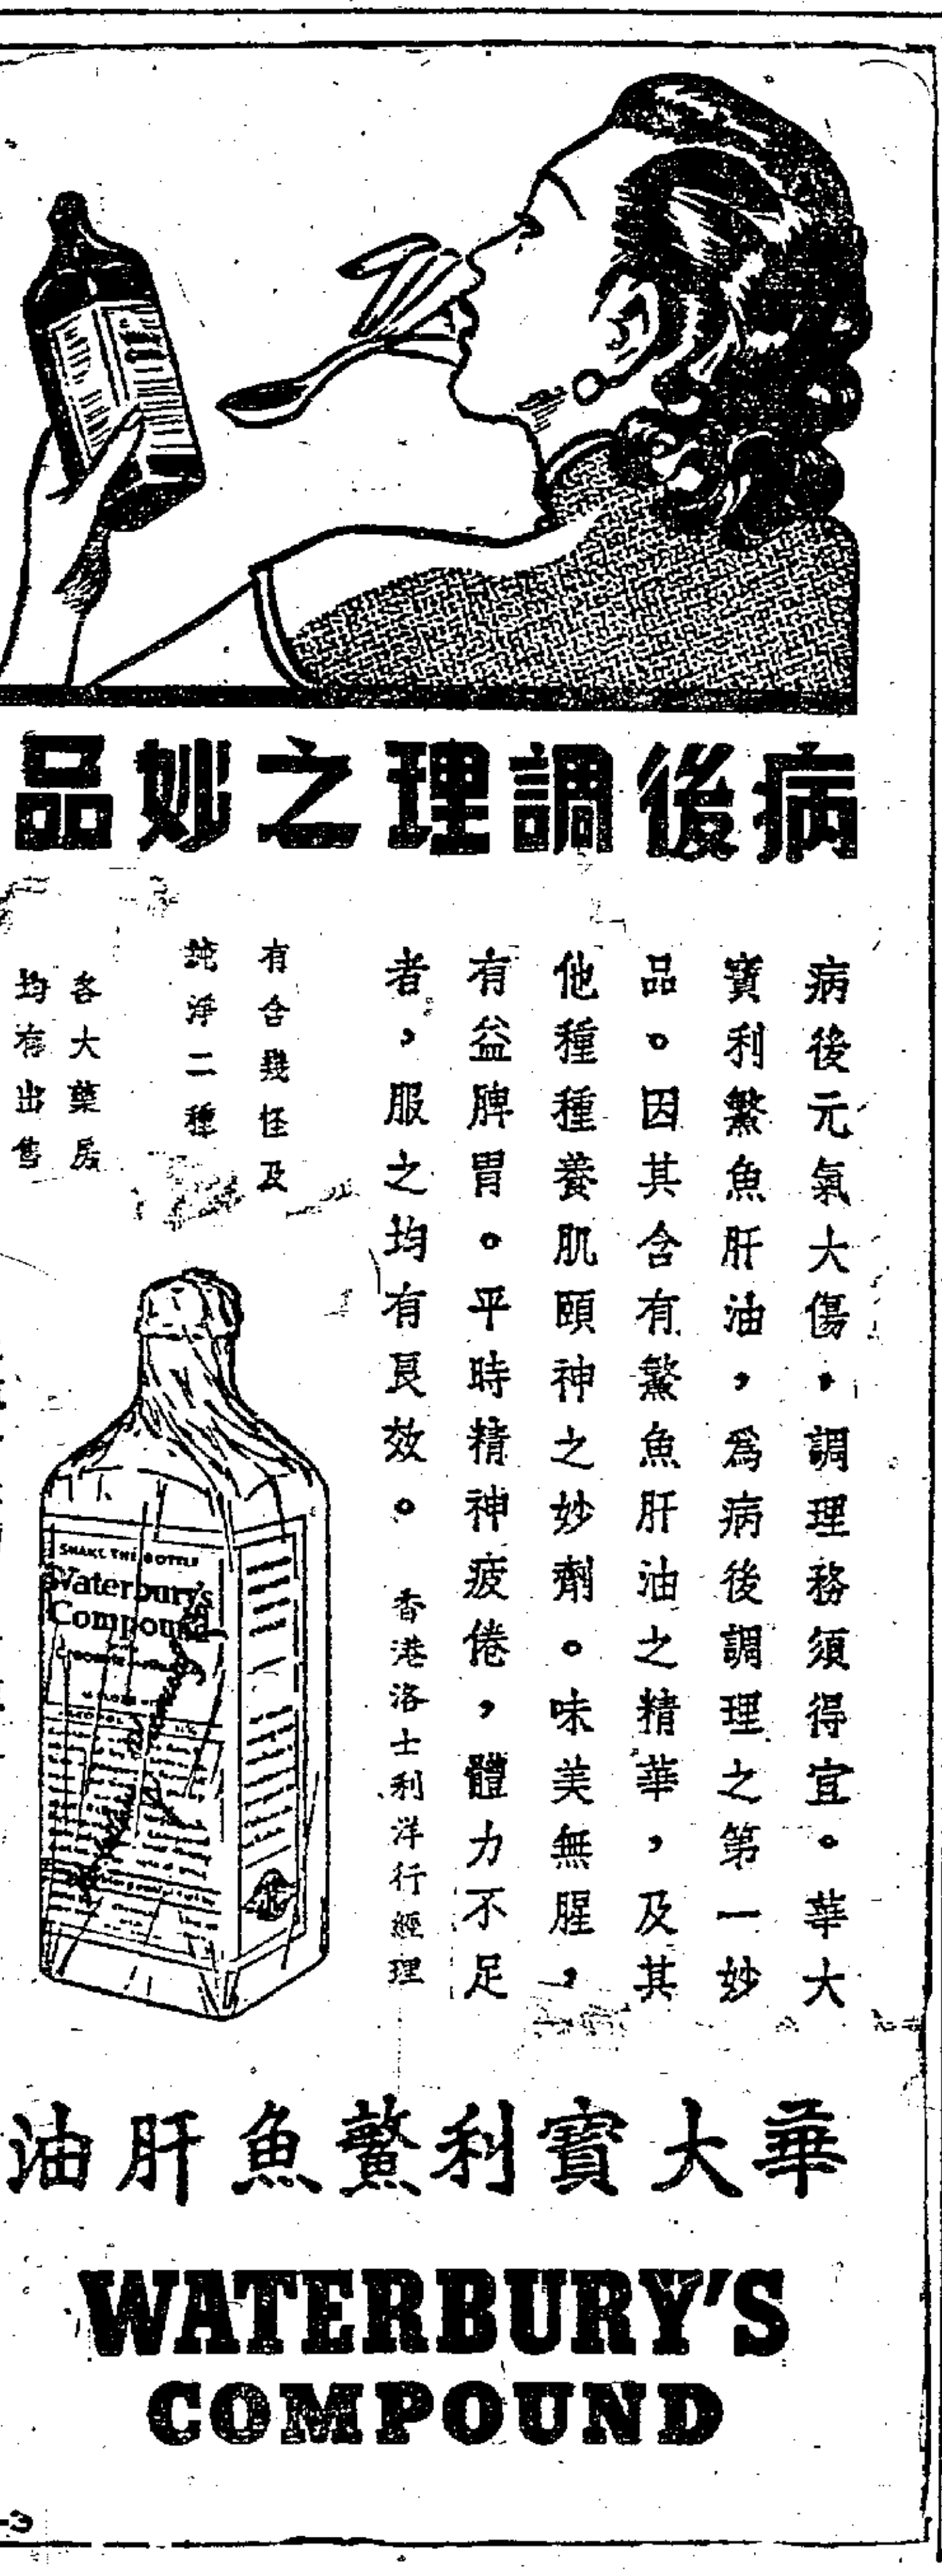 病後調理之妙品
病後元氣大傷，調理務須得宜。華大
寶利鰵魚肝油，爲病後調理之第一妙
品。因其含有鰵魚肝油之精華，及其
他種種養肌頤神之妙劑。味美無腥，
有益脾胃。平時精神疲倦，體力不足
者，服之均有良效。
香港洛士利洋行經理
有含幾怪及
純淨二種
各大藥房
均有出售
SHAKE THE BOTTLE
Waterbury's
Compound
華大寶利鰵魚肝油
WATERBURY'S
COMPOUND